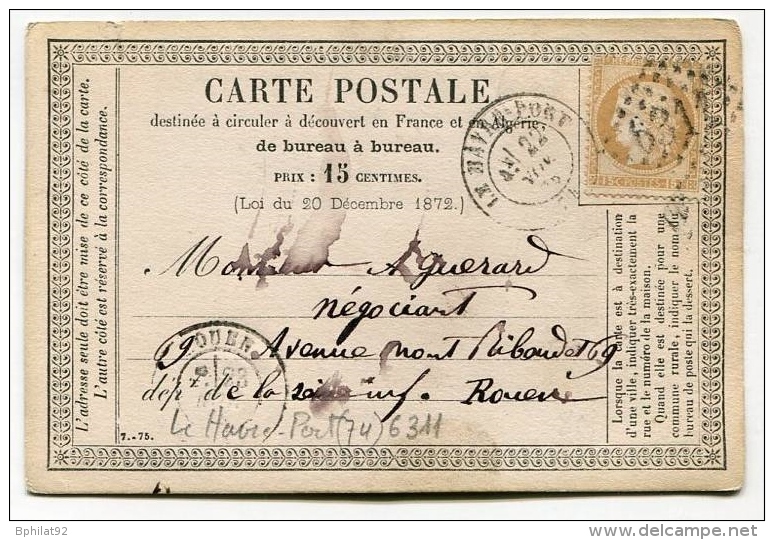 CARTE POSTALE
destinée à circuler à découvert en France et en Algérie
de bureau à bureau.
PRIX : 15 CENTIMES.
(Loi du 20 Décembre 1872.)
LE HAVRE-PORT
22
NOV.
6311
15 C POSTES 15
L'adresse seule doit être mise de ce côté de la carte.
L'autre côté est réservé à la correspondance.
Monsieur A Guerard
négociant
69 Avenue mont Riboudet 69
dép. de la seine inf. Rouen
ROUEN
Le Havre-Port (74) 6311
7.-75.
Lorsque la carte est à destination
d'une ville, indiquer très-exactement la
rue et le numéro de la maison.
Quand elle est destinée pour une
commune rurale, indiquer le nom du
bureau de poste qui la dessert.
Bphilat92
delcampe.net